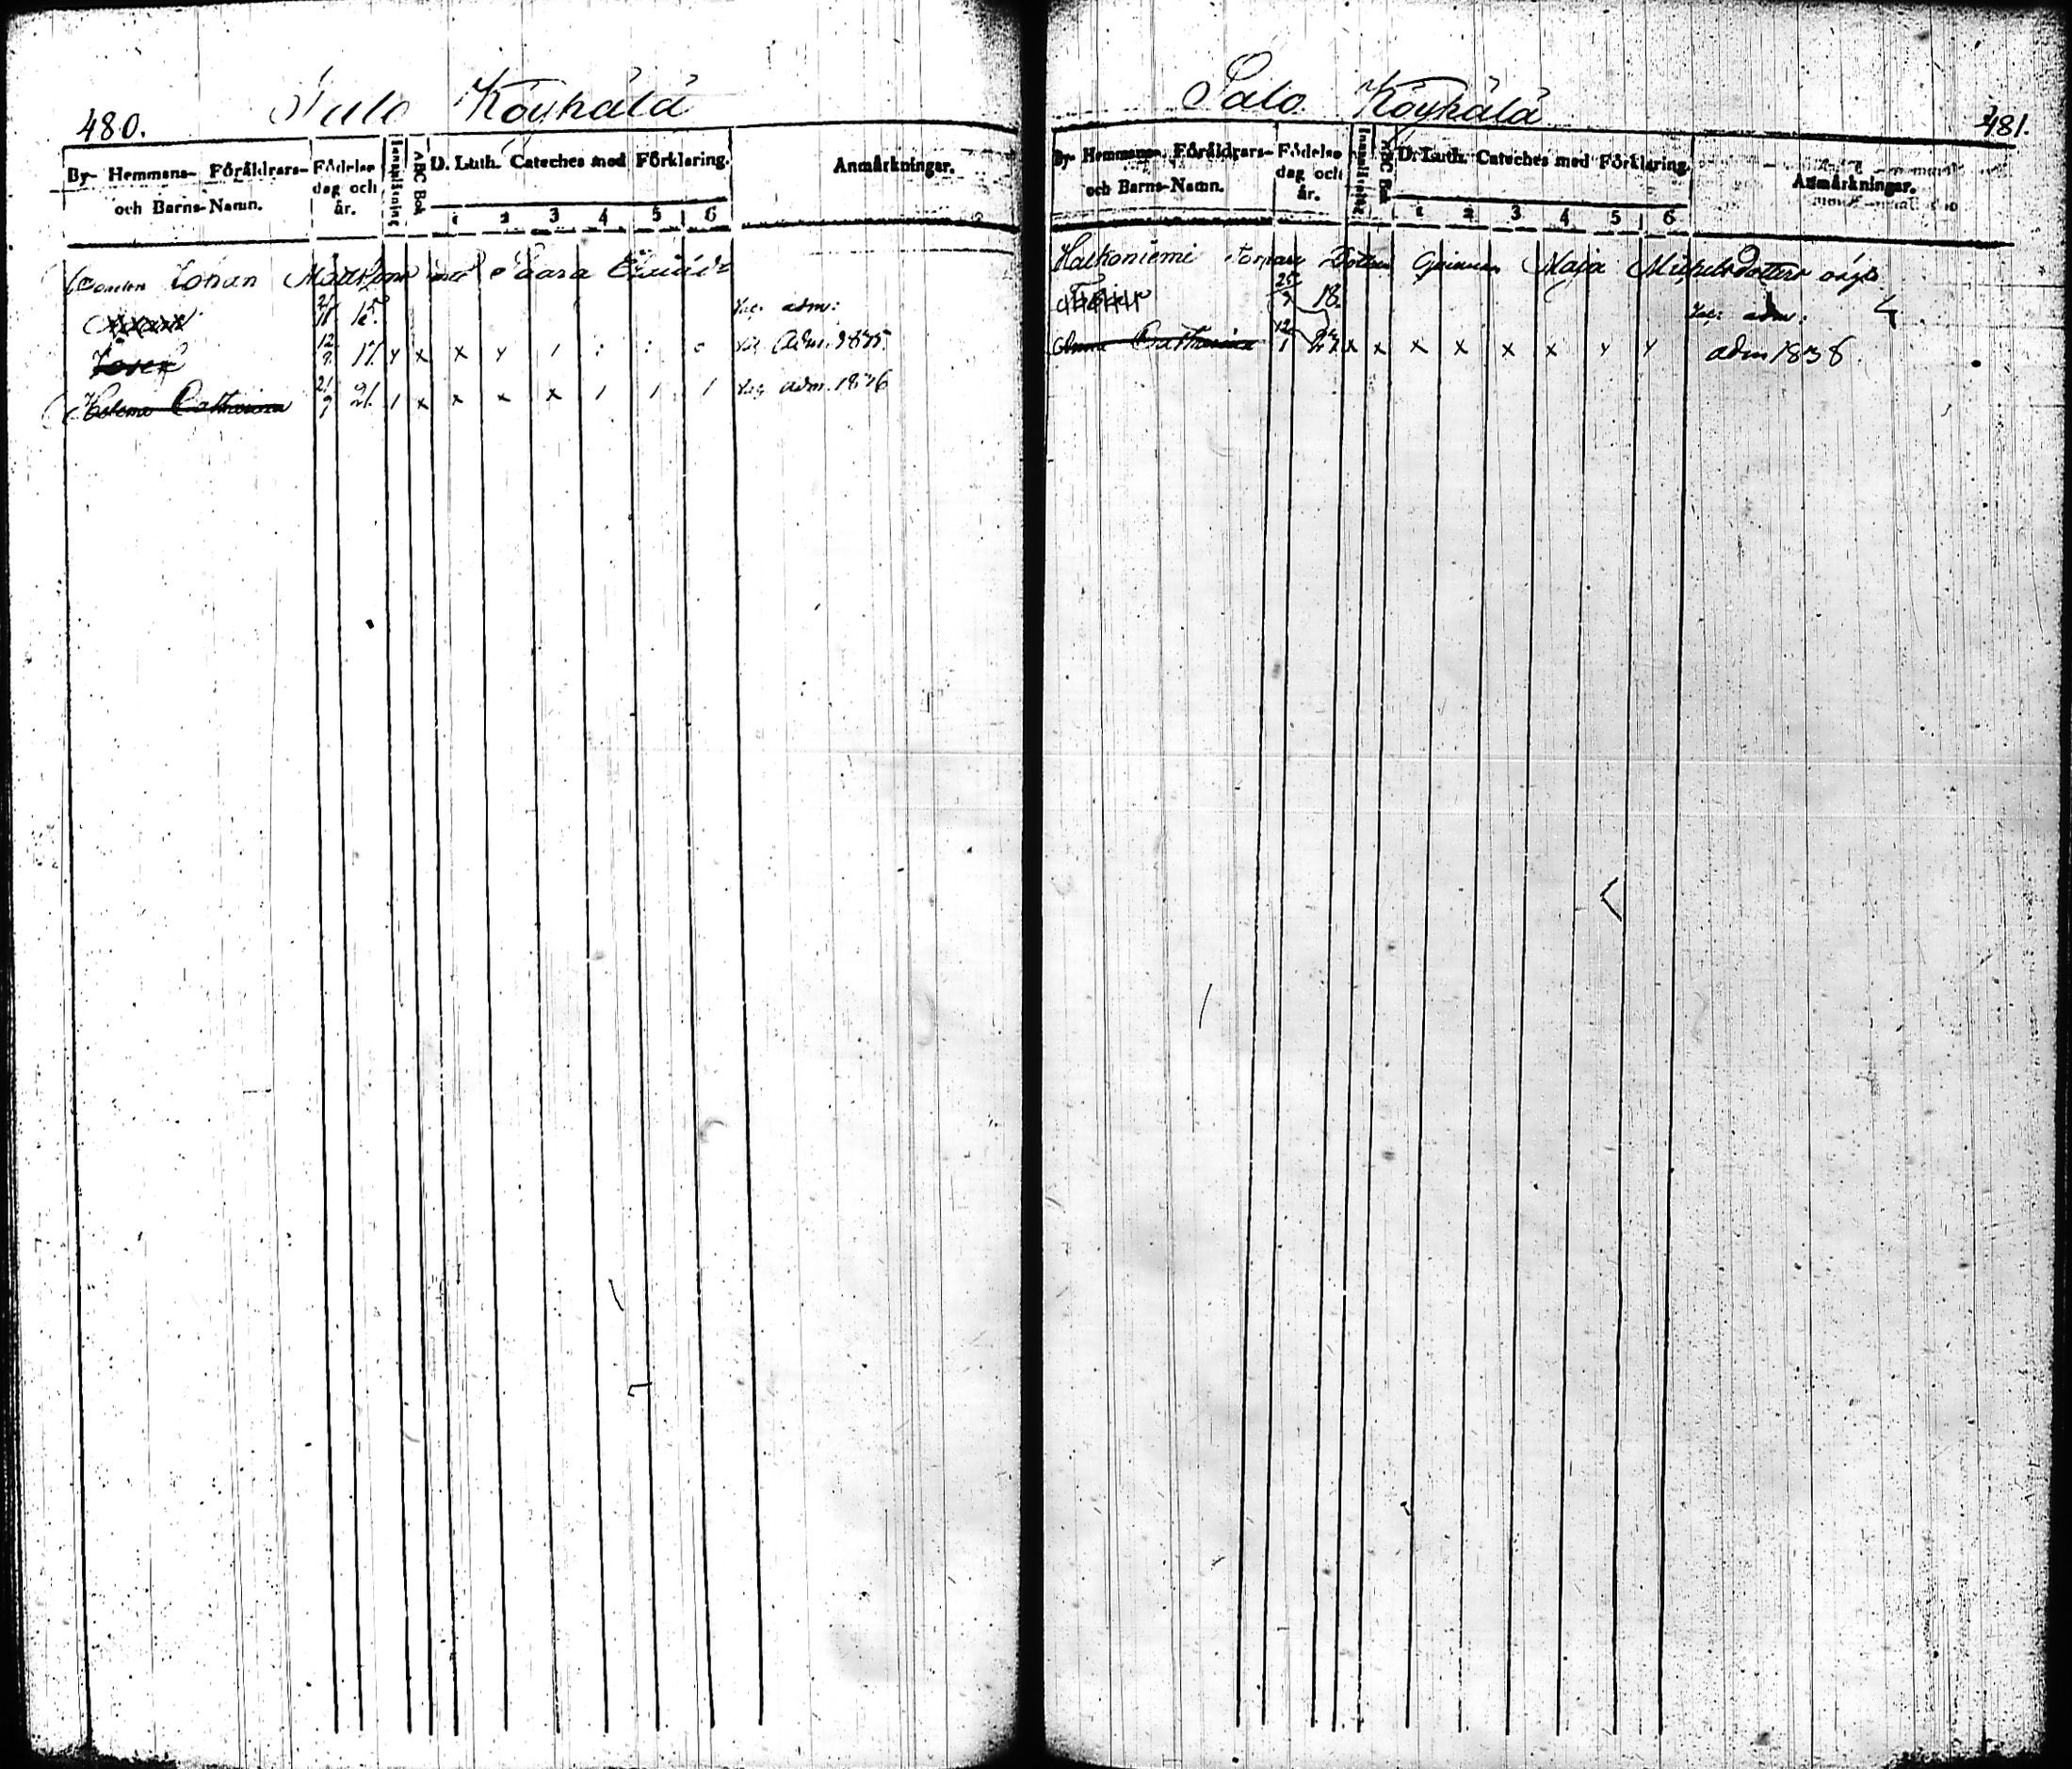 480.
Salo Köyhälä
By- Hemmans- Föräldrars- och Barns-Namn.
Födelse dag och år.
Innanläsning
ABC Bok
D. Luth. Cateches med Förklaring.
1 2 3 4 5 6
Anmärkningar.
Bonden Johan Mattsson med Saara
21/11 15. adm:
Josef 12/2 17. x x x x / : : Adm. 1835.
Helena Catharina 21/9 21. / x x x x / / / adm. 1836
Salo. Köyhälä
481.
By- Hemmans- Föräldrars- och Barns-Namn.
Födelse dag och år.
Innanläsning
ABC Bok
D. Luth. Cateches med Förklaring.
1 2 3 4 5 6
Anmärkningar.
Halkoniemi Torpare Maja Michelsdotters
25/9 18. adm:
Anna Catharina 12/1 x x x x x x x x adm 1838.